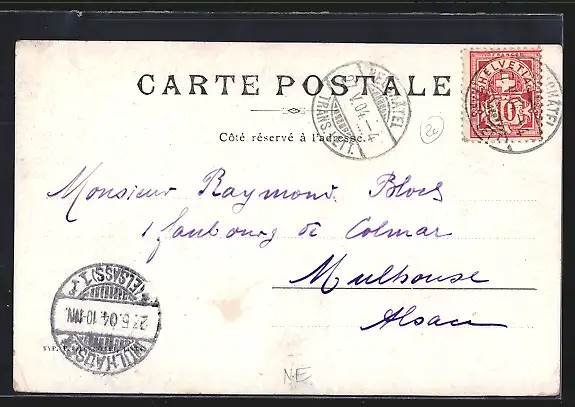 CARTE POSTALE
Côté réservé à l'adresse.
NEUCHÂTEL
TRANS. LETT.
HELVETIA
10
20
Monsieur Raymond Bloch
1 faubourg de Colmar
Mulhouse
Alsace
MÜLHAUSEN (ELSASS) 1.
5.04. 10-11V.
N-E